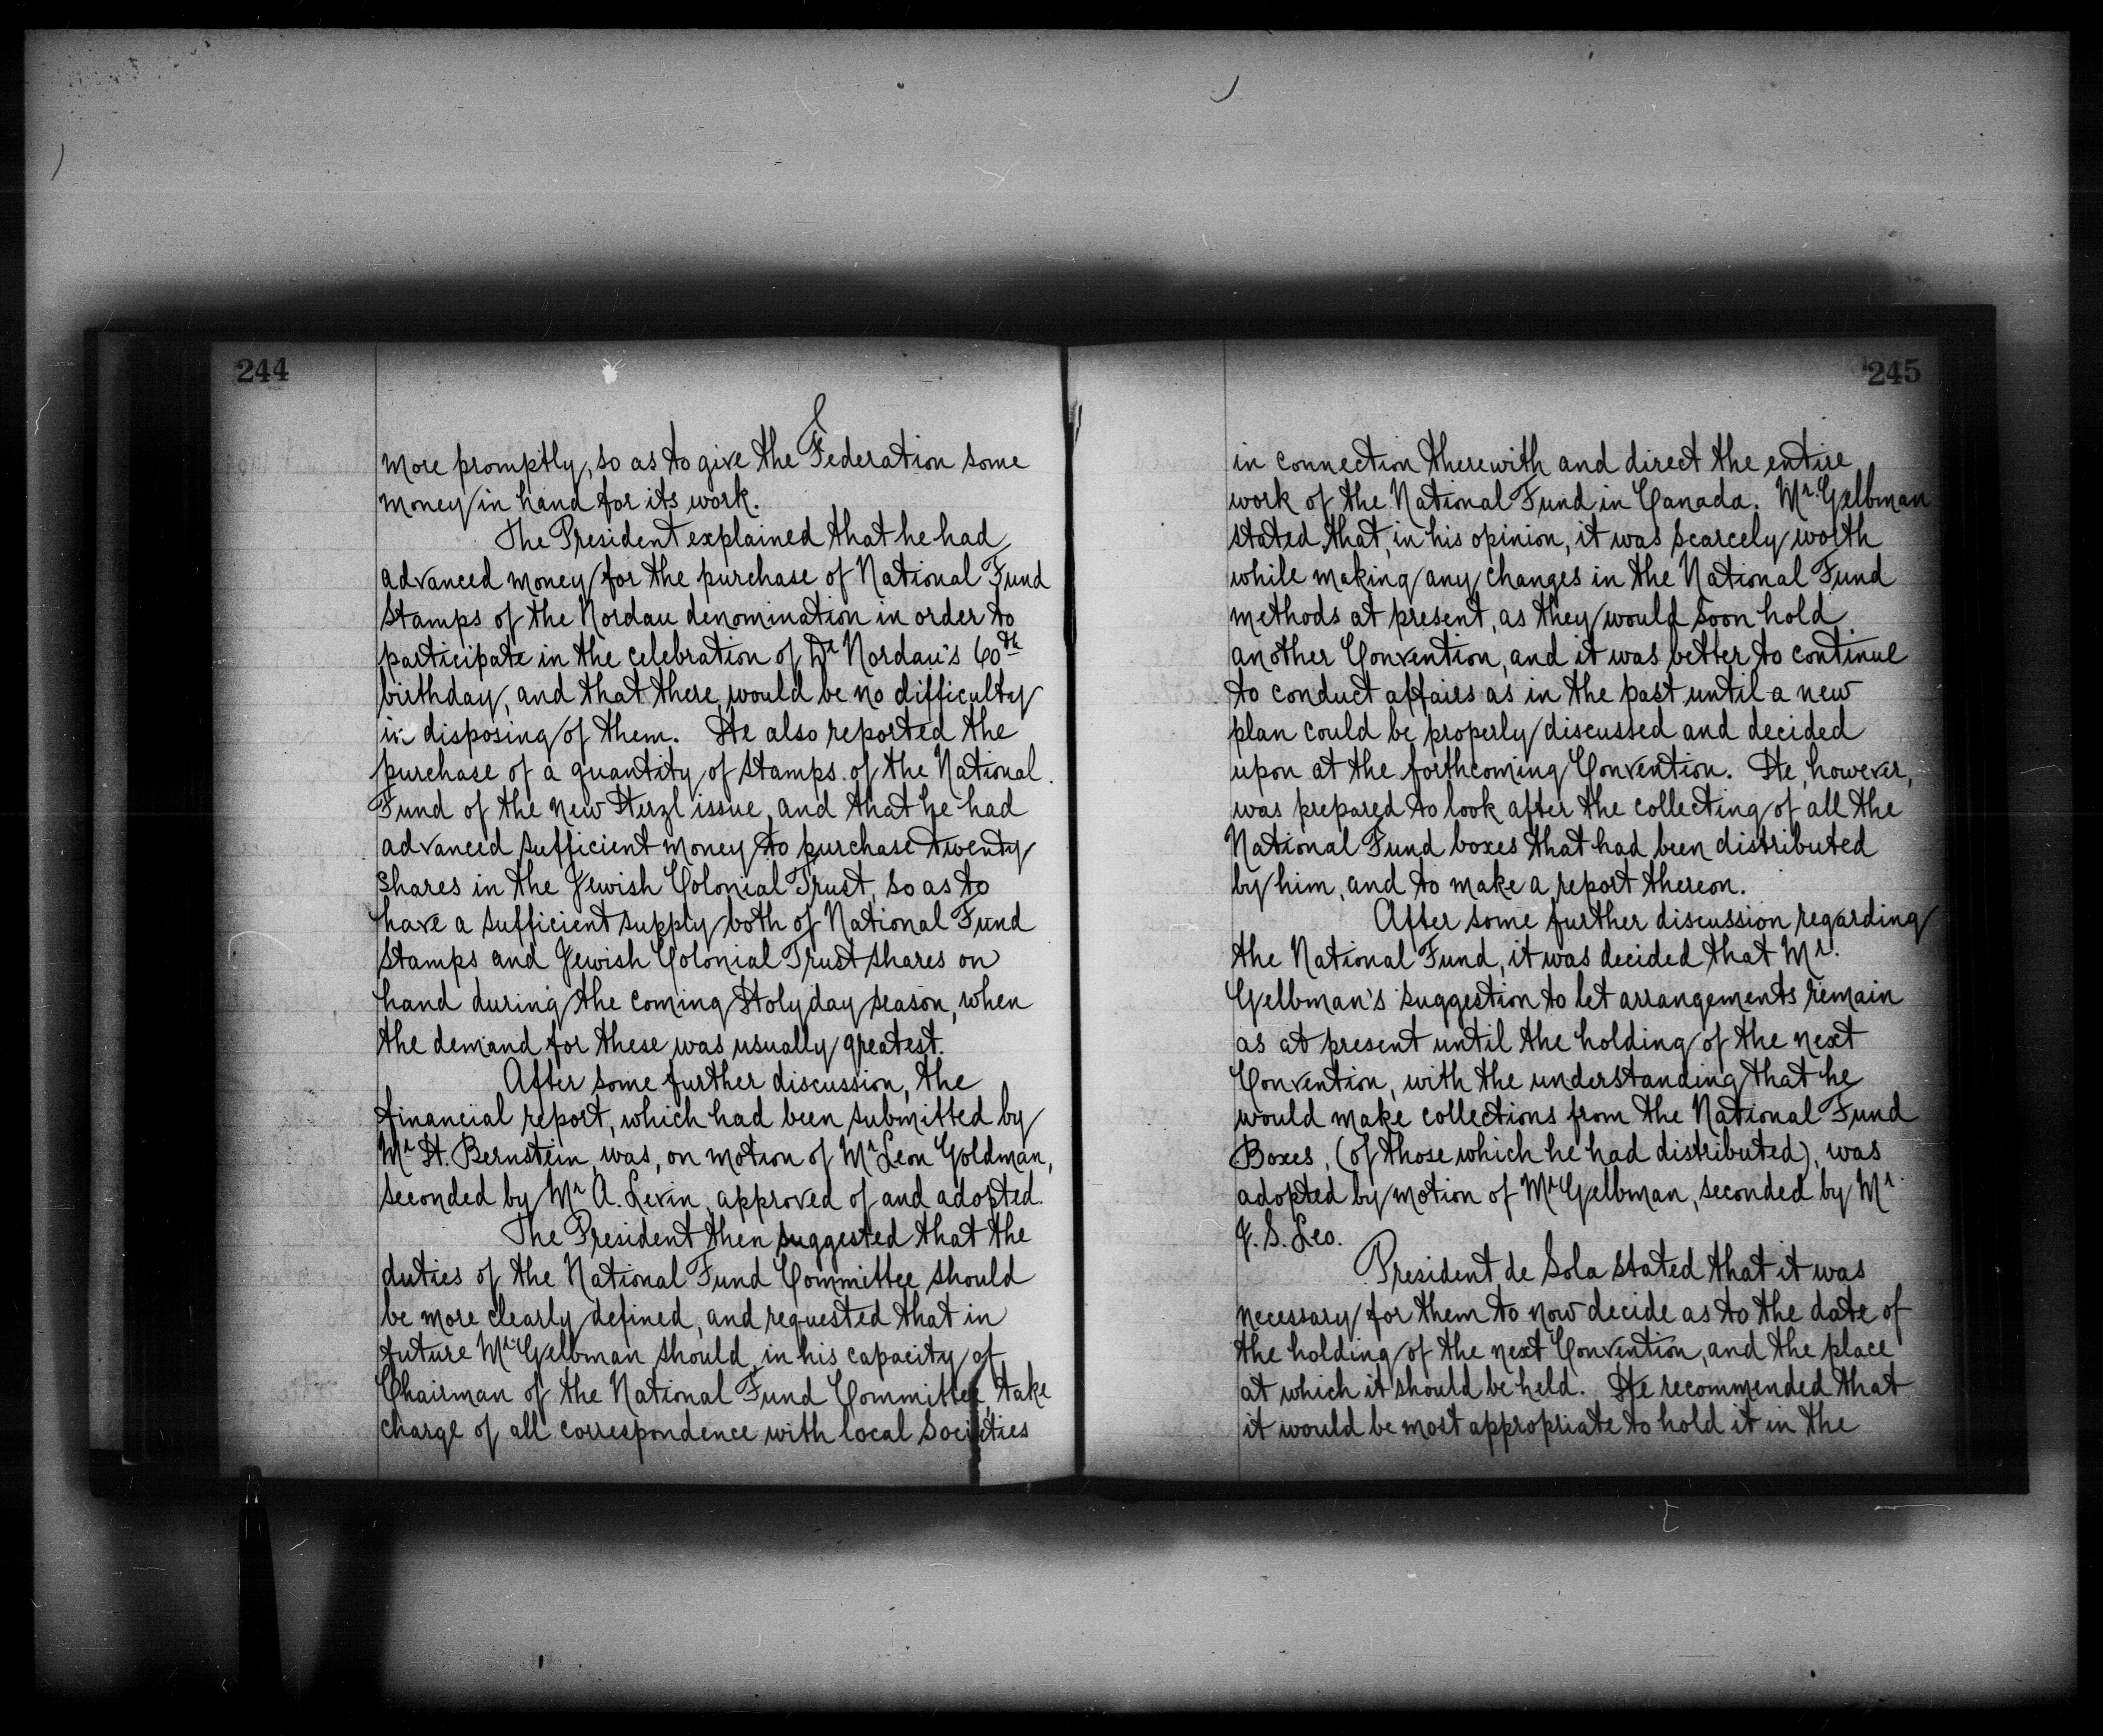 244
more promptly, so as to give the Federation some
money in hand for its work.
The President explained that he had
advanced money for the purchase of National Fund
stamps of the Nordau denomination in order to
participate in the celebration of Dr Nordau's 60th
birthday, and that there would be no difficulty
in disposing of them. He also reported the
purchase of a quantity of stamps of the National
Fund of the new Herzl issue, and that he had
advanced sufficient money to purchase twenty
shares in the Jewish Colonial Trust, so as to
have a sufficient supply both of National Fund
stamps and Jewish Colonial Trust shares on
hand during the coming Holyday season, when
the demand for these was usually greatest.
After some further discussion, the
financial report, which had been submitted by
Mr H. Bernstein, was, on motion of Mr Leon Goldman,
seconded by Mr A. Levin, approved of and adopted.
The President then suggested that the
duties of the National Fund Committee should
be more clearly defined, and requested that in
future Mr Gelbman should, in his capacity of
Chairman of the National Fund Committee, take
charge of all correspondence with local Societies
245
in connection therewith and direct the entire
work of the National Fund in Canada. Mr. Gelbman
stated that, in his opinion, it was scarcely worth
while making any changes in the National Fund
methods at present, as they would soon hold
another Convention, and it was better to continue
to conduct affairs as in the past until a new
plan could be properly discussed and decided
upon at the forthcoming Convention. He, however,
was prepared to look after the collecting of all the
National Fund boxes that had been distributed
by him, and to make a report thereon.
After some further discussion regarding
the National Fund, it was decided that Mr.
Gelbman's suggestion to let arrangements remain
as at present until the holding of the next
Convention, with the understanding that he
would make collections from the National Fund
Boxes, (of those which he had distributed), was
adopted by motion of Mr Gelbman, seconded by Mr.
J. S. Leo.
President de Sola stated that it was
necessary for them to now decide as to the date of
the holding of the next Convention, and the place
at which it should be held. He recommended that
it would be most appropriate to hold it in the